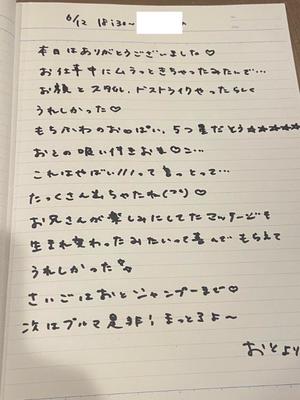 6/12 18:30〜
本日はありがとうございました♡
お仕事中にムラっときちゃったみたいで…
お顔とスタイル、ドストライクやったらしく
うれしかった♡
もちふわのおっぱい、5つ星だとう☆☆☆☆☆
おとの吸い付きお
これはやばい///って言っとって…
たっくさん出ちゃたね
お兄さんが楽しみにしてたマッサージも
生まれ変わったみたいって喜んでもらえて
うれしかった
さいごはおとジャンプーまで♡
次はプルで是非！まっとるよ〜
おとより